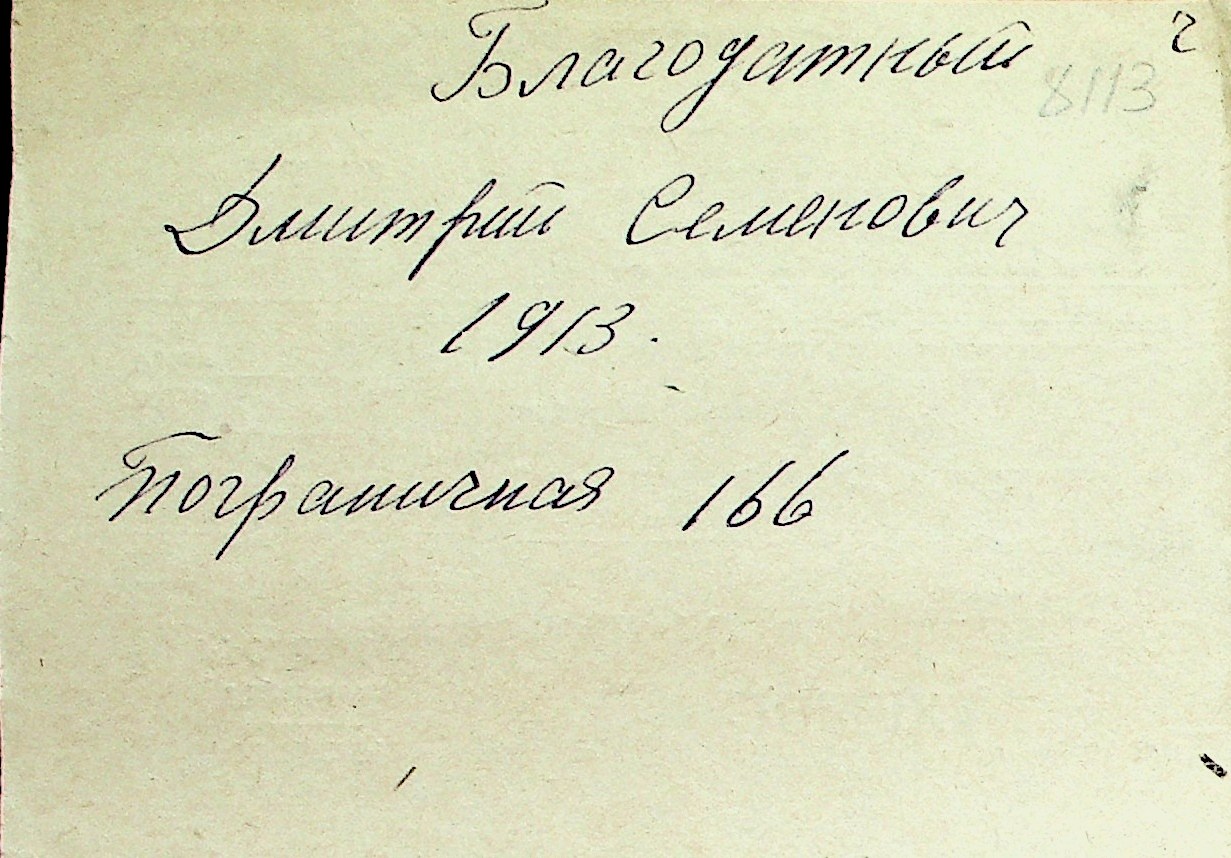 Благодатный ч
8113
Дмитрий Семенович
1913.
Пограничная 166